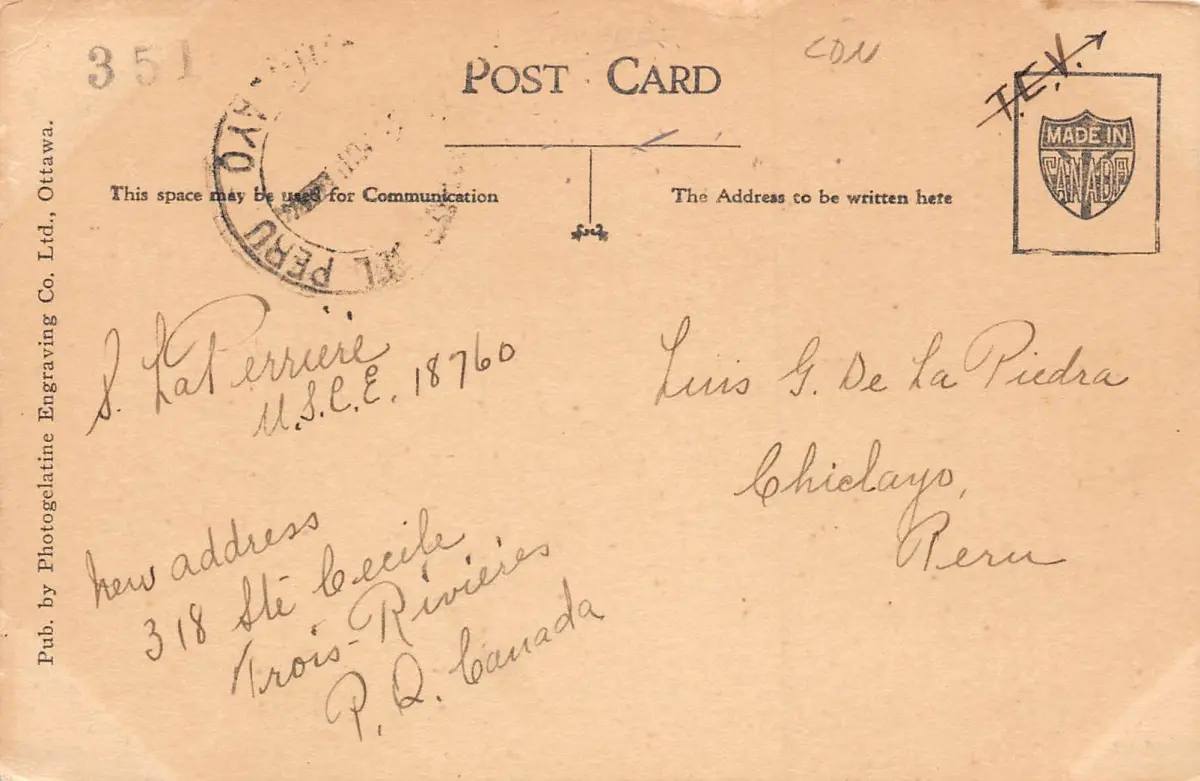 351
POST CARD
CDN
T.E.V.
MADE IN
CANADA
This space may be used for Communication
The Address to be written here
AYO
PERU
Pub. by Photogelatine Engraving Co. Ltd., Ottawa.
S. LaPerriere
U.S.C.E. 18760
New address
318 Ste Cecile
Trois-Rivières
P. Q. Canada
Luis G. De La Piedra
Chiclayo,
Peru